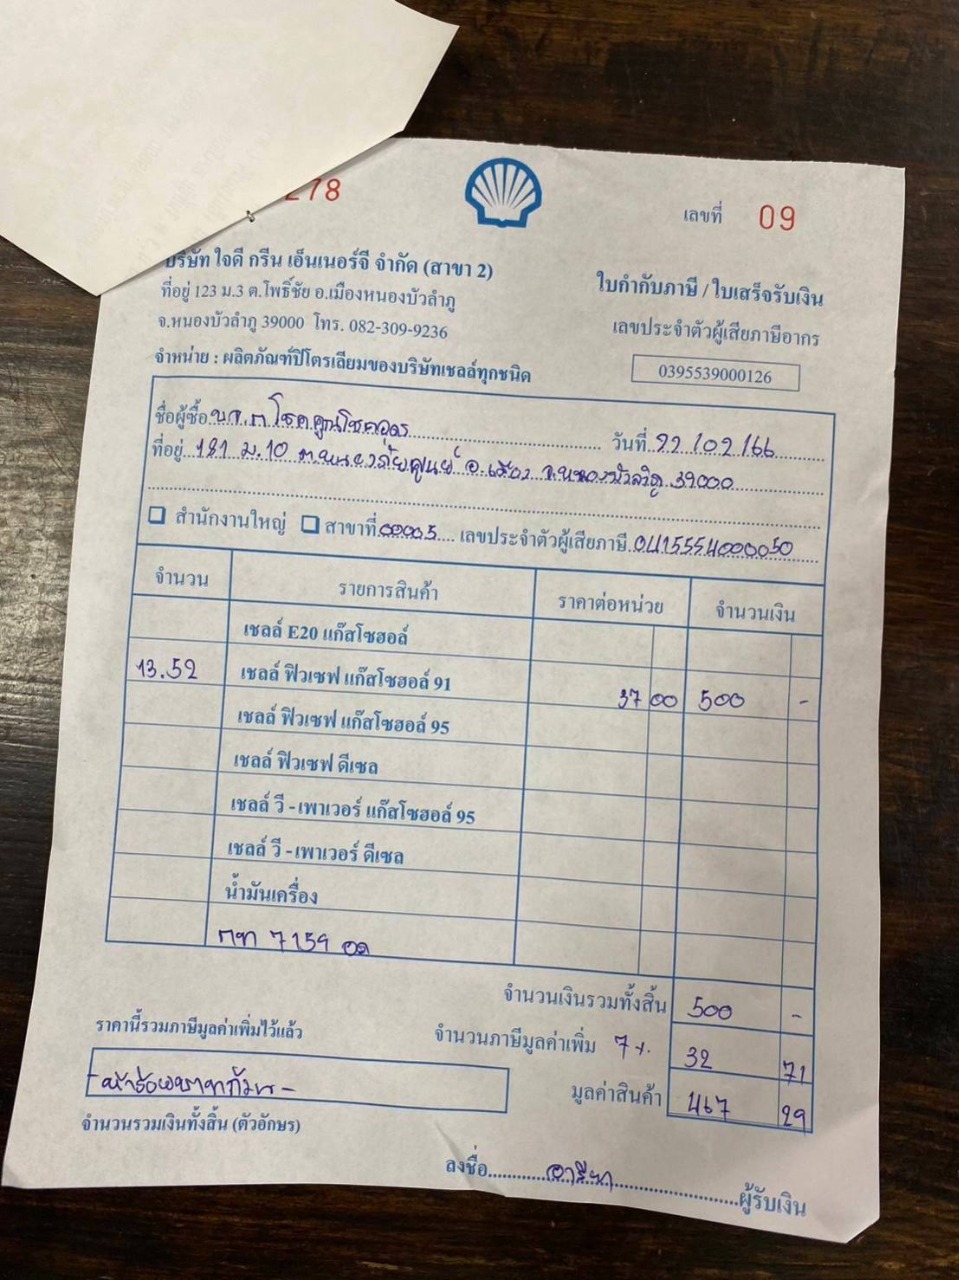 278
เลขที่ 09
บริษัท ใจดี กรีน เอ็นเนอร์จี จำกัด (สาขา 2)
ที่อยู่ 123 ม.3 ต.โพธิ์ชัย อ.เมืองหนองบัวลำภู
จ.หนองบัวลำภู 39000 โทร. 082-309-9236
จำหน่าย : ผลิตภัณฑ์ปิโตรเลียมของบริษัทเชลล์ทุกชนิด
ใบกำกับภาษี / ใบเสร็จรับเงิน
เลขประจำตัวผู้เสียภาษีอากร
0395539000126
ชื่อผู้ซื้อ บจ.ต โชคคูณโชคอุดร วันที่ 22/02/66
ที่อยู่ 181 ม.10 ต.หนองภัยศูนย์ อ.เมือง จ.หนองบัวลำภู 39000
สำนักงานใหญ่ สาขาที่ 00005 เลขประจำตัวผู้เสียภาษี 0415554000050
จำนวน รายการสินค้า ราคาต่อหน่วย จำนวนเงิน
เชลล์ E20 แก๊สโซฮอล์
13.52 เชลล์ ฟิวเซฟ แก๊สโซฮอล์ 91 37 00 500 -
เชลล์ ฟิวเซฟ แก๊สโซฮอล์ 95
เชลล์ ฟิวเซฟ ดีเซล
เชลล์ วี - เพาเวอร์ แก๊สโซฮอล์ 95
เชลล์ วี - เพาเวอร์ ดีเซล
น้ำมันเครื่อง
กท 7159 อด
จำนวนเงินรวมทั้งสิ้น 500 -
ราคานี้รวมภาษีมูลค่าเพิ่มไว้แล้ว จำนวนภาษีมูลค่าเพิ่ม 7% 32 71
-ห้าร้อยบาทถ้วน- มูลค่าสินค้า 467 29
จำนวนรวมเงินทั้งสิ้น (ตัวอักษร)
ลงชื่อ อารียา ผู้รับเงิน